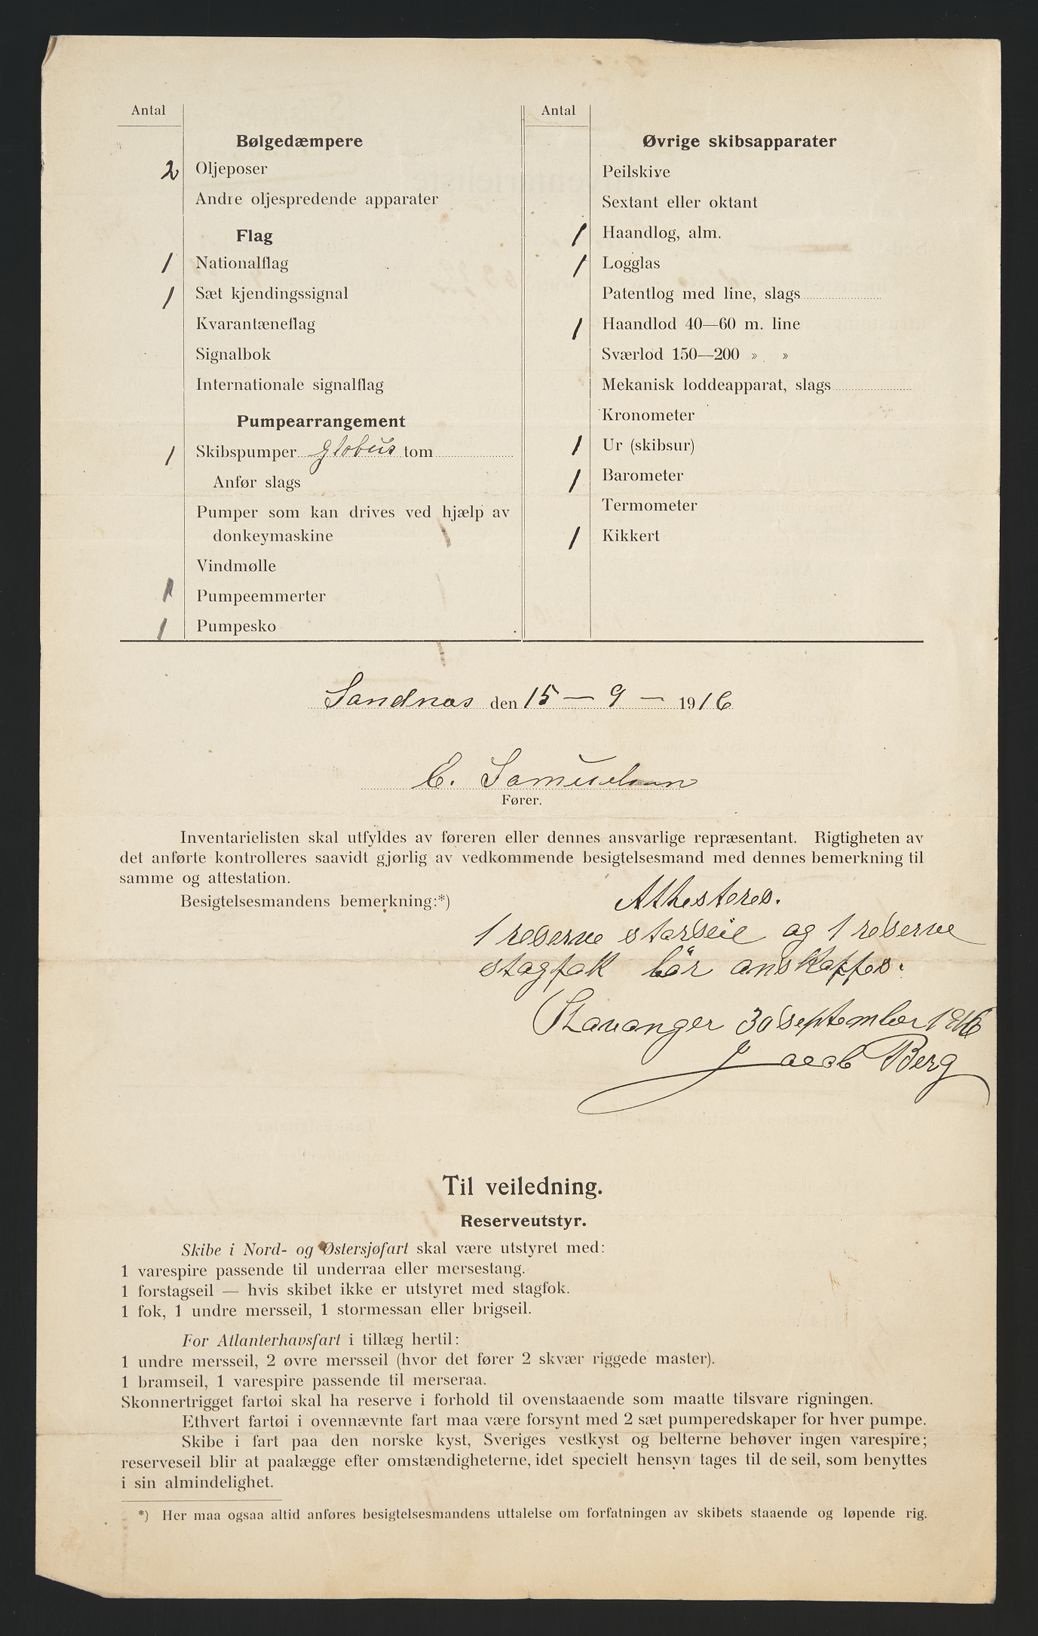 Antal
Bølgedæmpere
2 Oljeposer
Andre oljespredende apparater
Flag
1 Nationalflag
1 Sæt kjendingssignal
Kvarantæneflag
Signalbok
Internationale signalflag
Pumpearrangement
1 Skibspumper Globus tom
Anfør slags
Pumper som kan drives ved hjælp av
donkeymaskine
Vindmølle
1 Pumpeemmerter
1 Pumpesko
Antal
Øvrige skibsapparater
Peilskive
Sextant eller oktant
1 Haandlog, alm.
1 Logglas
Patentlog med line, slags
1 Haandlod 40—60 m. line
Sværlod 150—200 » »
Mekanisk loddeapparat, slags
Kronometer
1 Ur (skibsur)
1 Barometer
Termometer
1 Kikkert
Sandnæs den 15 — 9 — 1916
C. Samuelsen
Fører.
Inventarielisten skal utfyldes av føreren eller dennes ansvarlige repræsentant. Rigtigheten av
det anførte kontrolleres saavidt gjørlig av vedkommende besigtelsesmand med dennes bemerkning til
samme og attestation.
Besigtelsesmandens bemerkning:*) Athesteres.
1 reserve storseil og 1 reserve
stagfok bør anskaffes.
Stavanger 30 september 1916
Jacob Berg
Til veiledning.
Reserveutstyr.
Skibe i Nord- og Østersjøfart skal være utstyret med:
1 varespire passende til underraa eller mersestang.
1 forstagseil — hvis skibet ikke er utstyret med stagfok.
1 fok, 1 undre mersseil, 1 stormessan eller brigseil.
For Atlanterhavsfart i tillæg hertil:
1 undre mersseil, 2 øvre mersseil (hvor det fører 2 skvær riggede master).
1 bramseil, 1 varespire passende til merseraa.
Skonnertrigget fartøi skal ha reserve i forhold til ovenstaaende som maatte tilsvare rigningen.
Ethvert fartøi i ovennævnte fart maa være forsynt med 2 sæt pumperedskaper for hver pumpe.
Skibe i fart paa den norske kyst, Sveriges vestkyst og belterne behøver ingen varespire;
reserveseil blir at paalægge efter omstændigheterne, idet specielt hensyn tages til de seil, som benyttes
i sin almindelighet.
*) Her maa ogsaa altid anføres besigtelsesmandens uttalelse om forfatningen av skibets staaende og løpende rig.